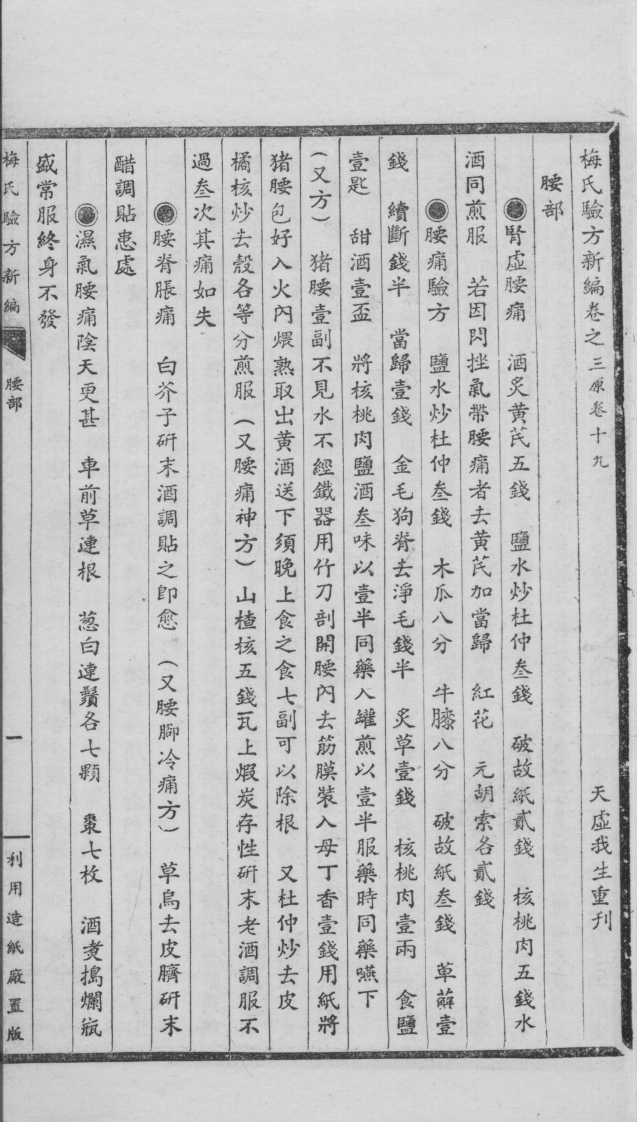 梅氏驗方新編卷之三原卷十九 天虛我生重刊
腰部
腎虛腰痛 酒炙黄芪五錢 鹽水炒杜仲叁錢 破故紙貳錢 核桃肉五錢水
酒同煎服 若因閃挫氣帶腰痛者去黄芪加當歸 紅花 元胡索各貳錢
腰痛驗方 鹽水炒杜仲叁錢 木瓜八分 牛膝八分 破故紙叁錢 萆薢壹
錢 續斷錢半 當歸壹錢 金毛狗脊去淨毛錢半 炙草壹錢 核桃肉壹兩 食鹽
壹匙 甜酒壹盃 將核桃肉鹽酒叁味以壹半同藥入罐煎以壹半服藥時同藥嚥下
(又方) 猪腰壹副不見水不經鐵器用竹刀剖開腰內去筋膜裝入母丁香壹錢用紙將
猪腰包好入火內煨熟取出黄酒送下須晚上食之食七副可以除根 又杜仲炒去皮
橘核炒去殼各等分煎服 (又腰痛神方) 山楂核五錢瓦上煅炭存性研末老酒調服不
過叁次其痛如失
腰脊脹痛 白芥子研末酒調貼之卽愈 (又腰脚冷痛方) 草烏去皮臍研末
醋調貼患處
濕氣腰痛陰天更甚 車前草連根 葱白連鬚各七顆 棗七枚 酒煑搗爛瓶
盛常服終身不發
梅氏驗方新編 腰部 一 利用造紙廠置版